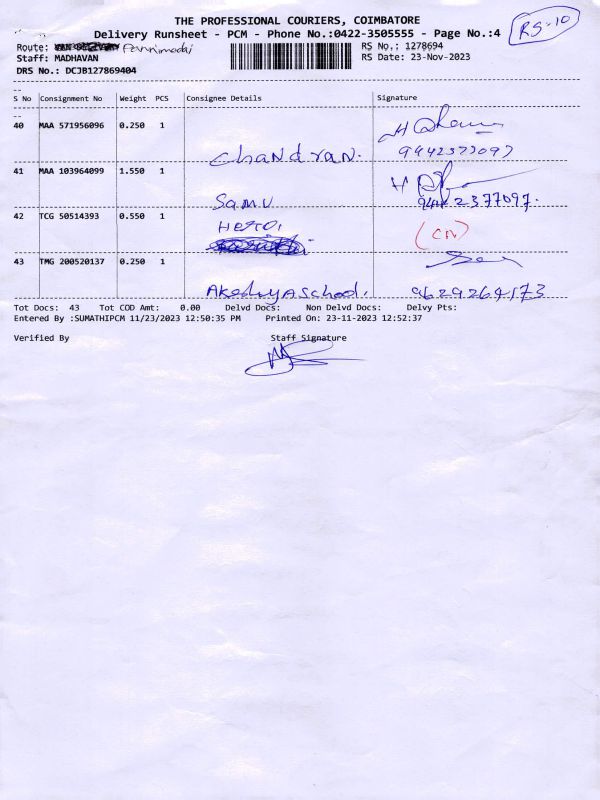 THE PROFESSIONAL COURIERS, COIMBATORE
RS-10
Delivery Runsheet - PCM - Phone No.:0422-3505555 - Page No.:4
Route: Pannimadai RS No.: 1278694
Staff: MADHAVAN RS Date: 23-Nov-2023
DRS No.: DCJB127869404
S No Consignment No Weight PCS Consignee Details Signature
40 MAA 571956096 0.250 1
Chandran. 9442377097
41 MAA 103964099 1.550 1
Samu 9442377097.
42 TCG 50514393 0.550 1 Hero, (CN)
43 TMG 200520137 0.250 1
AkshyA School. 9629264173
Tot Docs: 43 Tot COD Amt: 0.00 Delvd Docs: Non Delvd Docs: Delvy Pts:
Entered By :SUMATHIPCM 11/23/2023 12:50:35 PM Printed On: 23-11-2023 12:52:37
Verified By Staff Signature